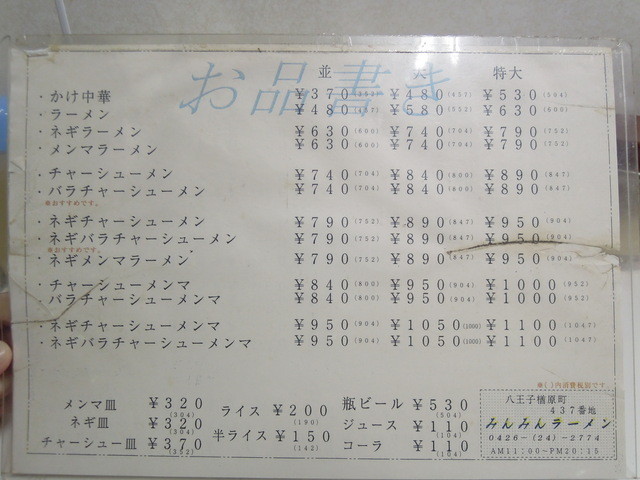 お品書き
並 大 特大
・かけ中華 ¥370(352) ¥480(457) ¥530(504)
・ラーメン ¥480(457) ¥580(552) ¥630(600)
・ネギラーメン ¥630(600) ¥740(704) ¥790(752)
・メンマラーメン ¥630(600) ¥740(704) ¥790(752)
・チャーシューメン ¥740(704) ¥840(800) ¥890(847)
・バラチャーシューメン ¥740(704) ¥840(800) ¥890(847)
※おすすめです。
・ネギチャーシューメン ¥790(752) ¥890(847) ¥950(904)
・ネギバラチャーシューメン ¥790(752) ¥890(847) ¥950(904)
※おすすめです。
・ネギメンマラーメン ¥790(752) ¥890(847) ¥950(904)
・チャーシューメンマ ¥840(800) ¥950(904) ¥1000(952)
・バラチャーシューメンマ ¥840(800) ¥950(904) ¥1000(952)
・ネギチャーシューメンマ ¥950(904) ¥1050(1000) ¥1100(1047)
・ネギバラチャーシューメンマ ¥950(904) ¥1050(1000) ¥1100(1047)
※( )内消費税別です。
メンマ皿 ¥320(304)
ネギ皿 ¥320(304)
チャーシュー皿 ¥370(352)
ライス ¥200(190)
半ライス ¥150(142)
瓶ビール ¥530(504)
ジュース ¥110(104)
コーラ ¥110(104)
八王子楢原町
437番地
みんみんラーメン
0426-(24)-2774
AM11:00~PM20:15